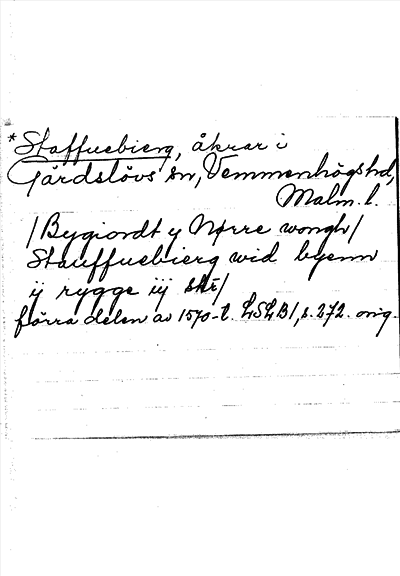 *Staffuebierg, åkrar i
Gärdslövs sn, Vemmenhögs hd,
Malm. l.
/Bygiordt y Nørre wongh/
Stauffuebierg wid byenn
ij rygge iij skr/
förra delen av 1570-t. LSLB1, s. 272. orig.